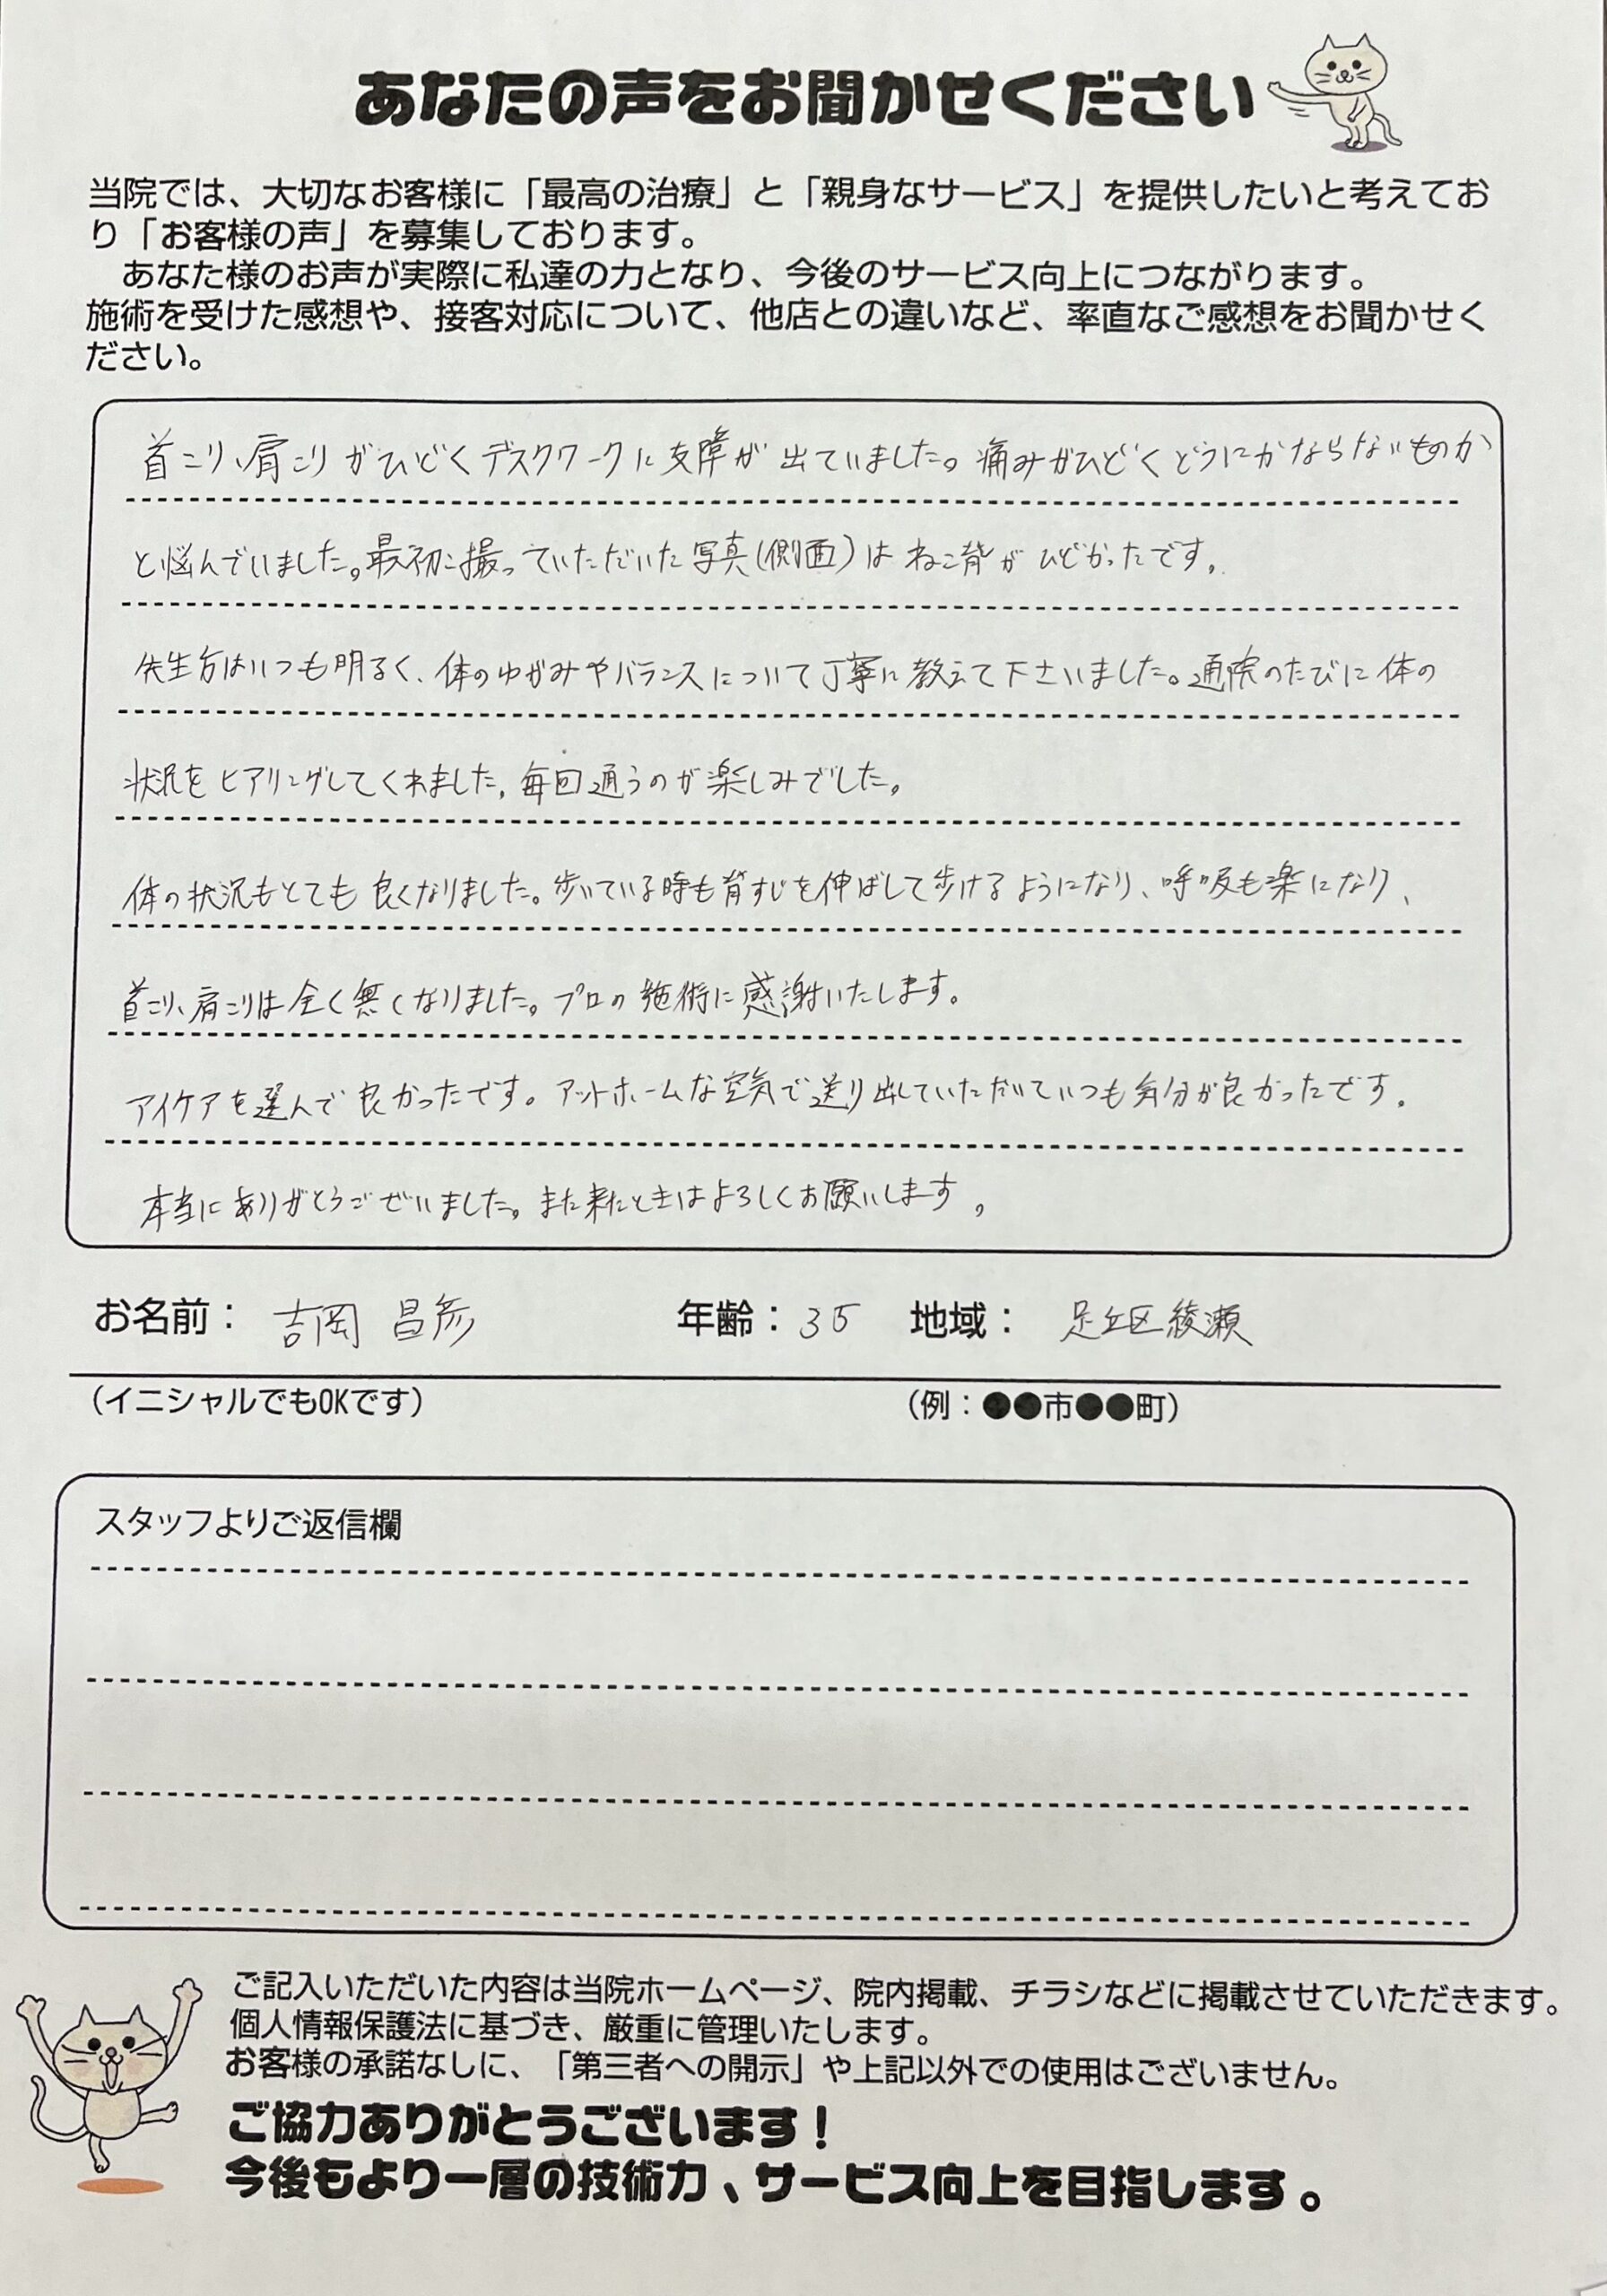 あなたの声をお聞かせください
当院では、大切なお客様に「最高の治療」と「親身なサービス」を提供したいと考えてお
り「お客様の声」を募集しております。
あなた様のお声が実際に私達の力となり、今後のサービス向上につながります。
施術を受けた感想や、接客対応について、他店との違いなど、率直なご感想をお聞かせく
ださい。
首こり、肩こりがひどくデスクワークに支障が出ていました。痛みがひどくどうにかならないものか
と悩んでいました。最初に撮っていただいた写真(側面)はねこ背がひどかったです。
先生方はいつも明るく、体のゆがみやバランスについて丁寧に教えて下さいました。通院のたびに体の
状況をヒアリングしてくれました。毎回通うのが楽しみでした。
体の状況もとても良くなりました。歩いている時も背すじを伸ばして歩けるようになり、呼吸も楽になり、
首こり、肩こりは全く無くなりました。プロの施術に感謝いたします。
アイケアを選んで良かったです。アットホームな空気で送り出していただいていつも気分が良かったです。
本当にありがとうございました。また来たときはよろしくお願いします。
お名前： 吉岡 昌彦 年齢：35 地域： 足立区綾瀬
（イニシャルでもOKです） （例：●●市●●町）
スタッフよりご返信欄
ご記入いただいた内容は当院ホームページ、院内掲載、チラシなどに掲載させていただきます。
個人情報保護法に基づき、厳重に管理いたします。
お客様の承諾なしに、「第三者への開示」や上記以外での使用はございません。
ご協力ありがとうございます！
今後もより一層の技術力、サービス向上を目指します。